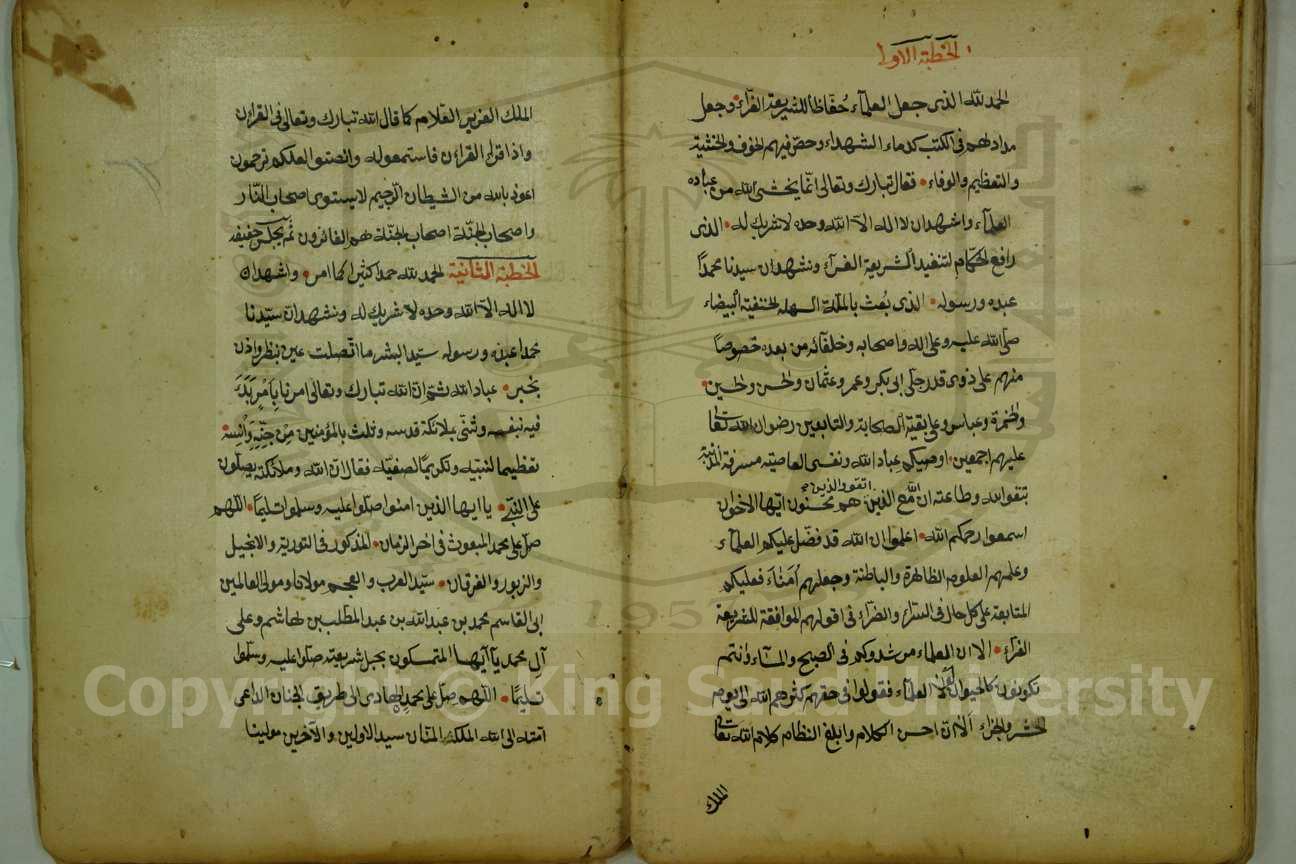 الخطبة الاولى
الحمد لله الذى جعل العلمآء حُفّاظاً للشريعة الغرّآء وجعل
مدادهم فى الكتب كدماء الشهداء وخصّ فيهم الخوف والخشية
والتعظيم والوفاء فقال تبارك وتعالى انّما يخشى الله من عباده
العلمآء واشهد ان لا اله الّا الله وحده لا شريك له الذى
رافع الحكّام لتنفيد الشريعة الغرآء ونشهد ان سيدنا محمداً
عبده ورسوله الذى بُعث بالملّة السهلة الحنفية البيضاء
صلّى الله عليه وعلى اله واصحابه وخلفآئه من بعده خصوصاً
منهم على ذوى قدر جلى ابى بكر وعمر وعثمان والحسن والحسين
والحمزة وعباس وعلى بقية الصحابة والتابعين رضوان الله تعالى
عليهم اجمعين اوصيكم عباد الله ونفسى العاصية مسرفة المذنبة
بتقو الله وطاعته ان الله مع الذين اتقوا والذين هم محسنون ايّها الاخوان
اسمعوا رحمكم الله اعلموا ان الله قد فضّل عليكم العلمآء
وعلمهم العلوم الظاهرة والباطنة وجعلهم اُمَنَآءَ فعليكم
المتابعة على كل حال فى السرّاء والضرّاء فى اقوالهم الموافقة للشريعة
الغرّآء الا ان العلماء مرشدوكم فى الصبح والمسآء وانتم
تكونون كالحيوان العلمآء فقولوا فى حقهم كثرهم الله الى يوم
الحشر والجزاء ألا ان احسن الكلام وابلغ النظام كلام الله تعالى
الملك
الملك العزيز العلّام كما قال الله تبارك وتعالى فى القراءن
واذا قرئ القراءن فاستمعوا له وانصتوا لعلكم ترحمون
اعوذ بالله من الشيطان الرجيم لا يستوى اصحاب النّار
واصحاب الجنّة اصحاب الجنّة هم الفائزون ثم يجلس خفيفة
الخطبة الثانية الحمد لله حمداً كثيراً كما امر واشهد ان
لا اله الّا الله وحده لا شريك له ونشهد ان سيّدنا
محمداً عبده ورسوله سيّد البشر ما اتّصلت عين بنظر واذن
بخبر عباد الله ثمّ انّ الله تبارك وتعالى امرنا بِاَمْرٍ بَدَءَ
فيه بنفسه وثنّى بملائكة قدسه وثلث بالمؤمنين مِنْ جِنِّهِ وَاِنْسِهِ
تعظيماً لنبيّه وتكريماً لصفيّه فقال انّ الله وملئكته يصلّون
على النّبىّ يا ايها الذين امنوا صلّوا عليه وسلموا تسليماً اللّهم
صلّ على محمد المبعوث فى اخر الزمان المذكور فى التورية والانجيل
والزبور والفرقان سيّد العرب والعجم مولانا ومولى العالمين
ابى القاسم محمد بن عبد الله بن عبد المطّلب بن هاشم وعلى
آلِ محمد يا آيّها المتمسكون بحبل شريعته صلّوا عليه وسلّموا
تسليماً اللّهم صلّ على محمد الهادى الى طريق الجنان الداعى
امته الى الله الملك المنّان سيد الاولين والآخرين مولينا
Copyright © King Saud University
1957